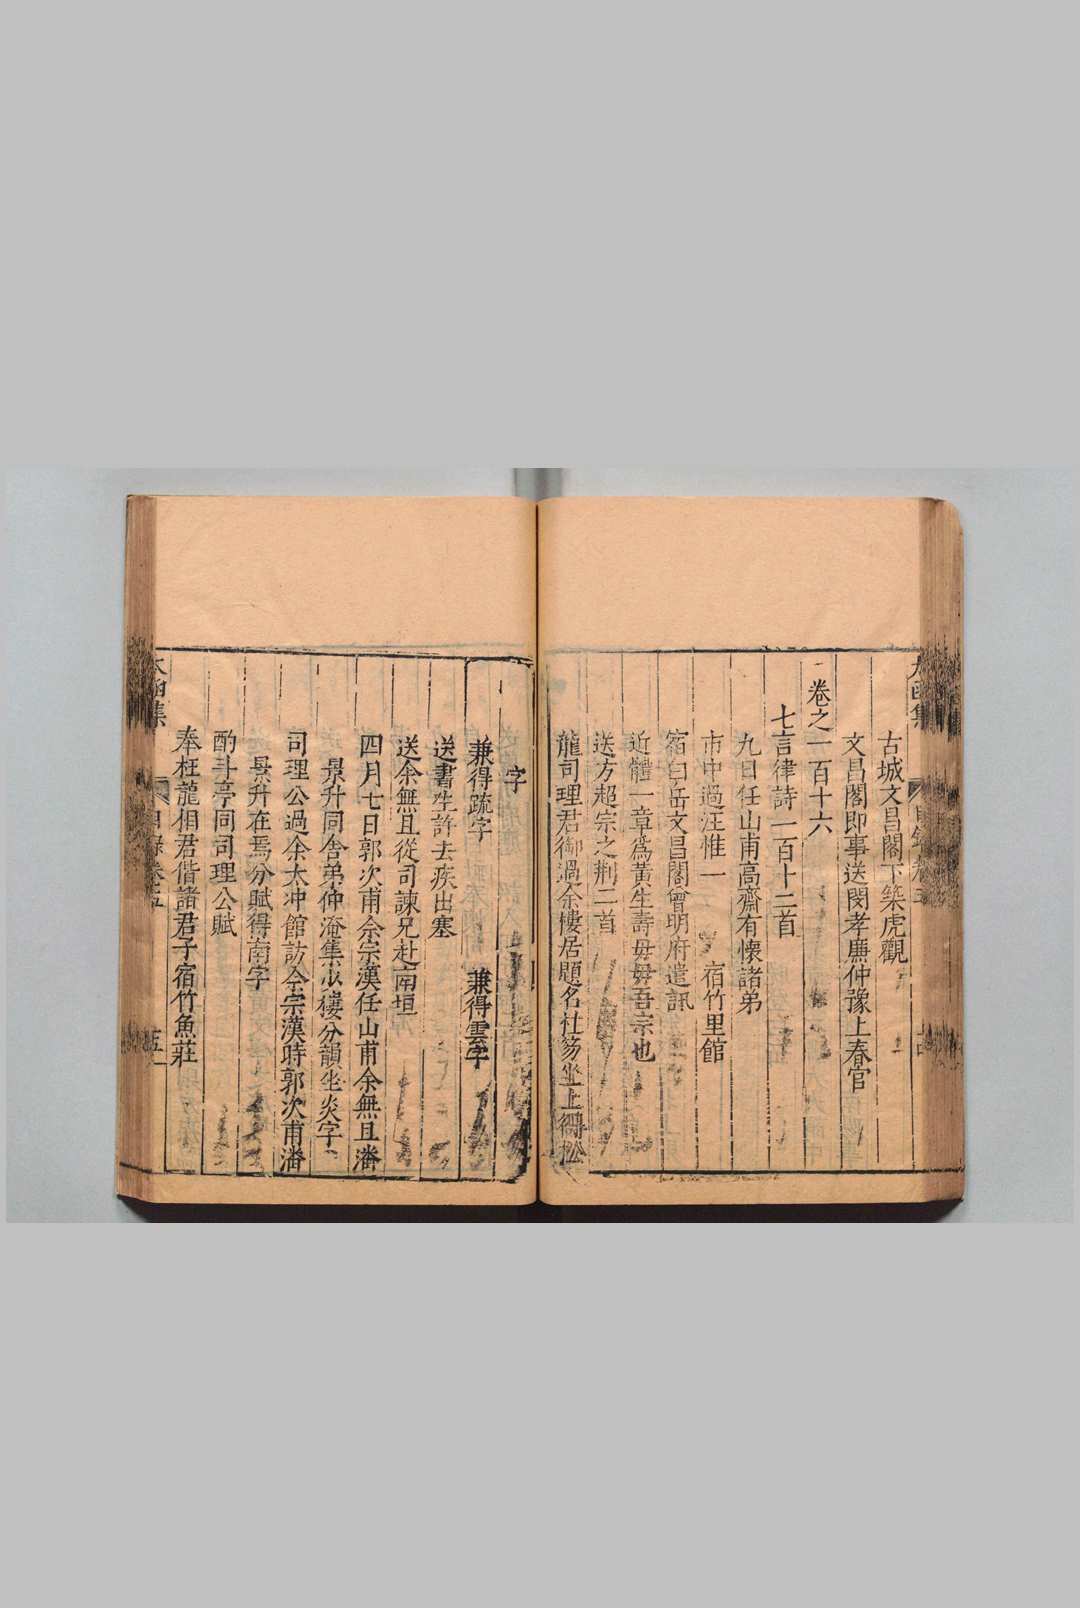 古城文昌閣下築虎觀
文昌閣即事送閔孝廉仲豫上春官
卷之一百十六
七言律詩一百十二首
九日任山甫高齋有懷諸弟
市中過汪惟一
宿竹里館
宿白岳文昌閣曾明府遣訊
近體一章為黃生壽毋毋吾宗也
送方超宗之荆二首
龍司理君御過余樓居題名社芴坐上得松
字
兼得疏字
兼得雲字
送書生許去疾出塞
送余無且從司諫兄赴南垣
四月七日郭次甫佘宗漢任山甫余無且潘
景升同舍弟仲淹集水樓分韻坐炎字
司理公過余太冲館訪佘宗漢時郭次甫潘
景升在焉分賦得南字
酌斗亭同司理公賦
奉枉龍相君偕諸君子宿竹魚莊
太函集
目錄卷五